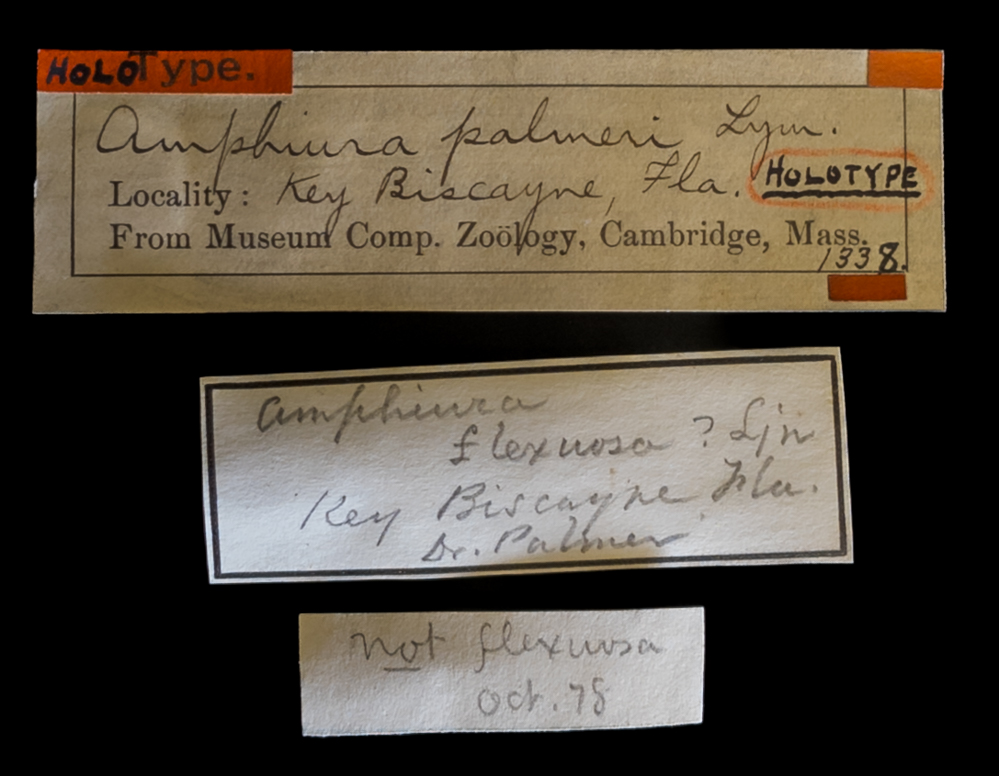 HOLOType.
Amphiura palmeri Lym.
Locality: Key Biscayne, Fla. HOLOTYPE
From Museum Comp. Zoölogy, Cambridge, Mass.
1338.
Amphiura
flexuosa ? Ljn
Key Biscayne Fla.
Dr. Palmer
Not flexuosa
Oct. 78